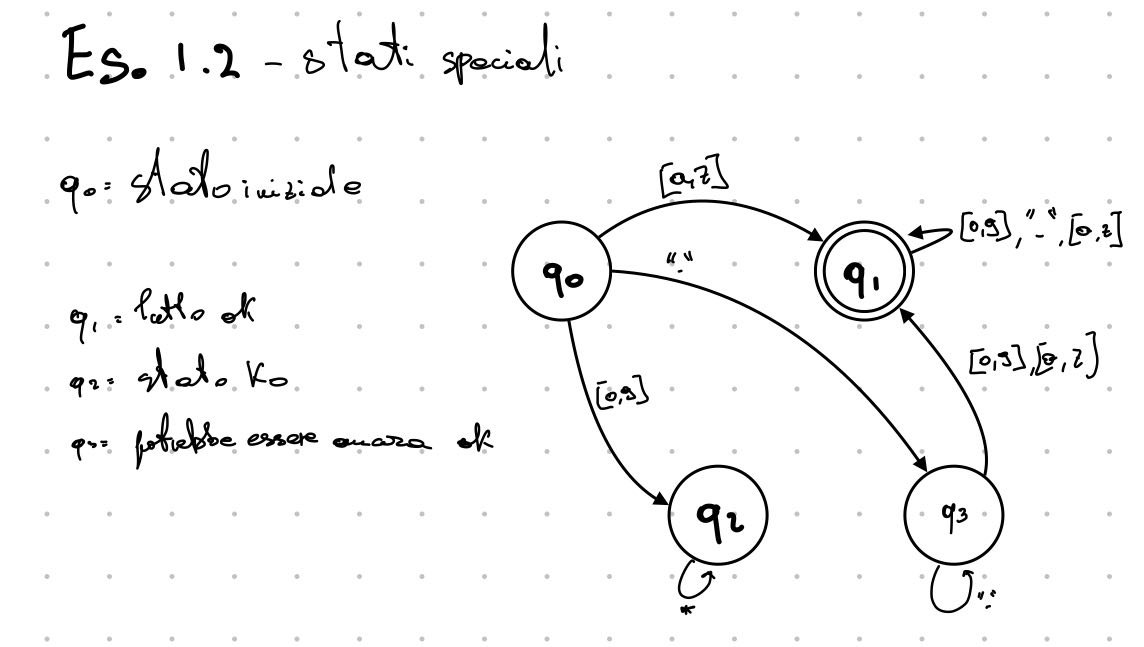 Es. 1.2 - stati speciali
q0 = stato iniziale
q1 = tutto ok
q2 = stato KO
q3 = potrebbe essere ancora ok
[a,z]
q0
"_"
q1
[0,9], "_", [a,z]
[0,9]
[0,9], [a,z]
q2
q3
*
"_"